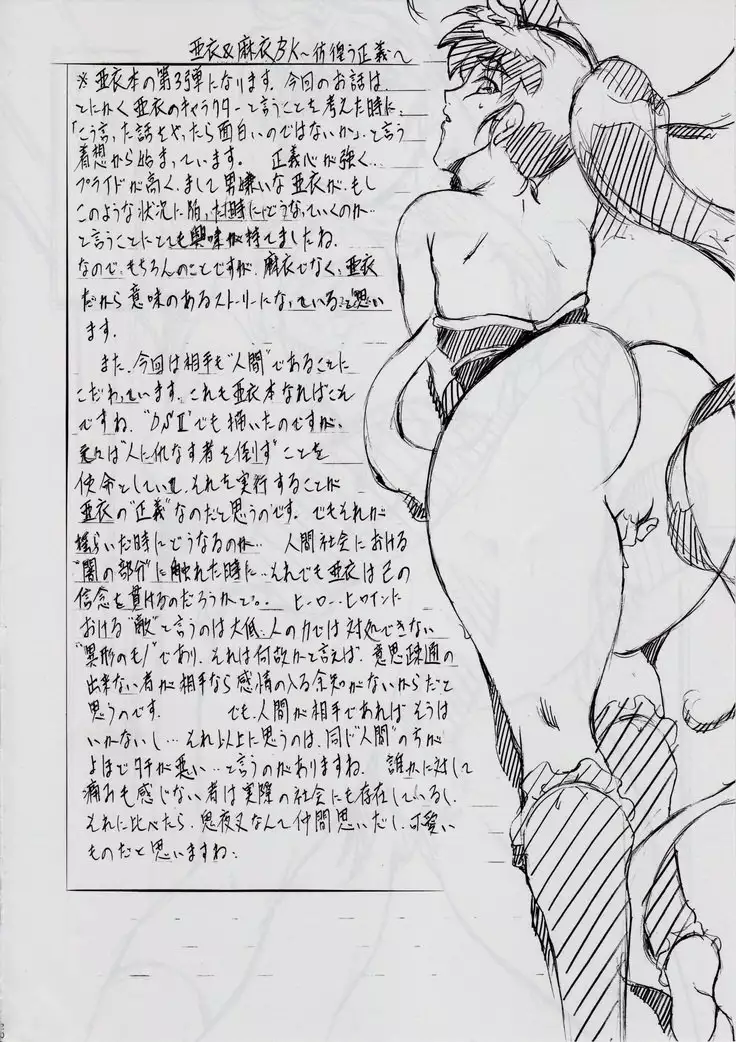 亜衣&麻衣BK～彷徨う正義～
※亜衣本の第3弾になります。今回のお話は、
とにかく亜衣のキャラクターと言うことを考えた時に、
「こう言った話をやったら面白いのではないか」と言う
着想から始まっています。 正義心が強く…
プライドが高く、まして男嫌いな亜衣が、もし
このような状況に陥った時にどうなっていくのか…
と言うことにとても興味が持てましたね。
なので、もちろんのことですが、麻衣でなく、亜衣
だから意味のあるストーリーになっていると思い
ます。
また、今回は相手も"人間"であることに
こだわっています。これも亜衣本なればこそ
ですね。 でも描いたのですが、
"人に仇なす者を倒す"ことを
使命としていて、それを実行することが
亜衣の"正義"なのだと思うのです。でもそれが
揺らいだ時にどうなるのか… 人間社会における
"闇の部分"に触れた時に…それでも亜衣は己の
信念を貫けるのだろうかと。 ヒーロー、ヒロインに
おける"敵"と言うのは大低、人の力では対処できない
"異形のモノ"であり、それは何故かと言えば、意思疎通の
出来ない者が相手なら感情の入る余地がないからだと
思うのです。 でも、人間が相手であればそうは
いかないし…それ以上に思うのは、同じ"人間"の方が
よほどタチが悪い…と言うのがありますね。 誰かに対して
痛みも感じない者は実際の社会にも存在しているし、
それに比べたら、 なんて仲間思いだし、可愛い
ものだと思いますね。